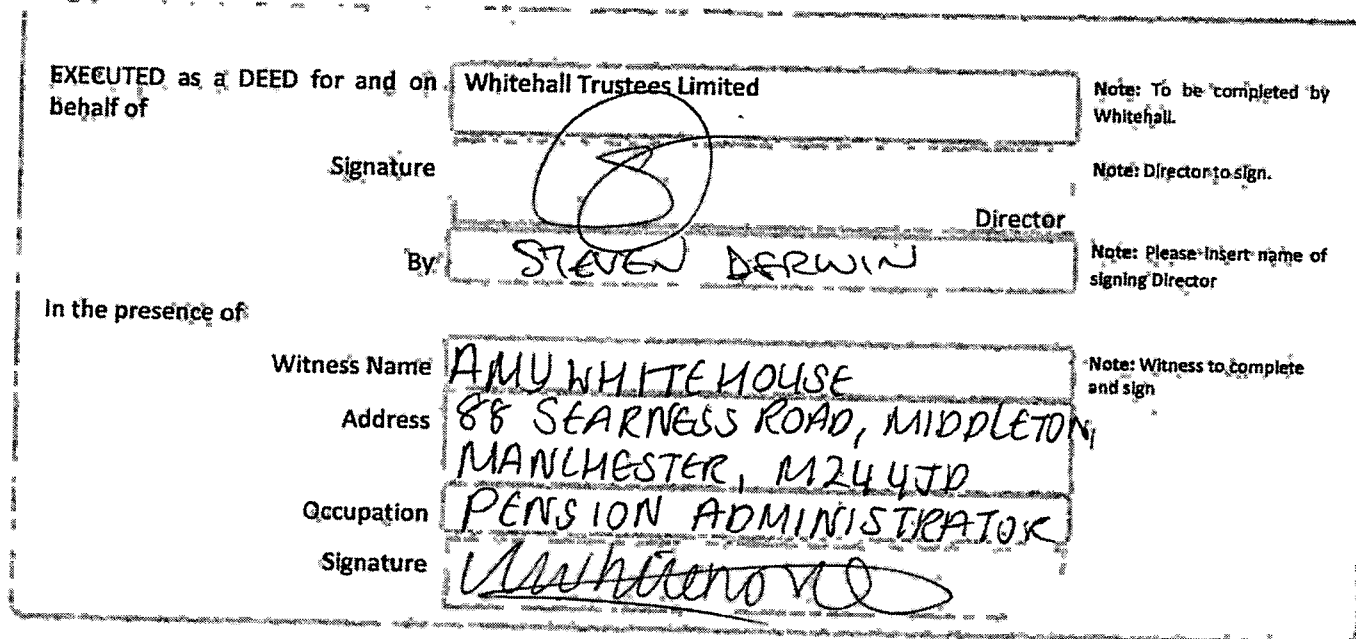 EXECUTED as a DEED for and on behalf of
Whitehall Trustees Limited
Note: To be completed by Whitehall.
Signature
Note: Director to sign.
Director
By
STEVEN DERWIN
Note: Please insert name of signing Director
In the presence of
Witness Name
AMY WHITEHOUSE
Note: Witness to complete and sign
Address
88 SEARNESS ROAD, MIDDLETON,
MANCHESTER, M24 4JD
Occupation
PENSION ADMINISTRATOR
Signature